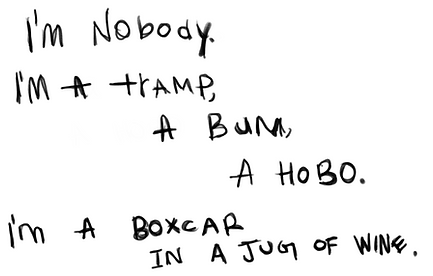 I'm Nobody.
I'M A trAMP,
A BUM,
A HOBO.
I'm A BOXCAR
IN A JUG OF WINE.